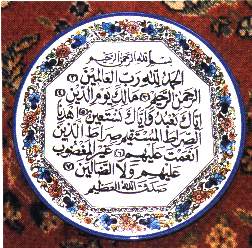 بسم الله الرحمن الرحيم
الحمد لله رب العالمين ١
الرحمن الرحيم ٢ مالك يوم الدين ٣
اياك نعبد واياك نستعين ٤ اهدنا
الصراط المستقيم ٥ صراط الذين
انعمت عليهم ٦ غير المغضوب
عليهم ولا الضالين ٧
صدق الله العظيم